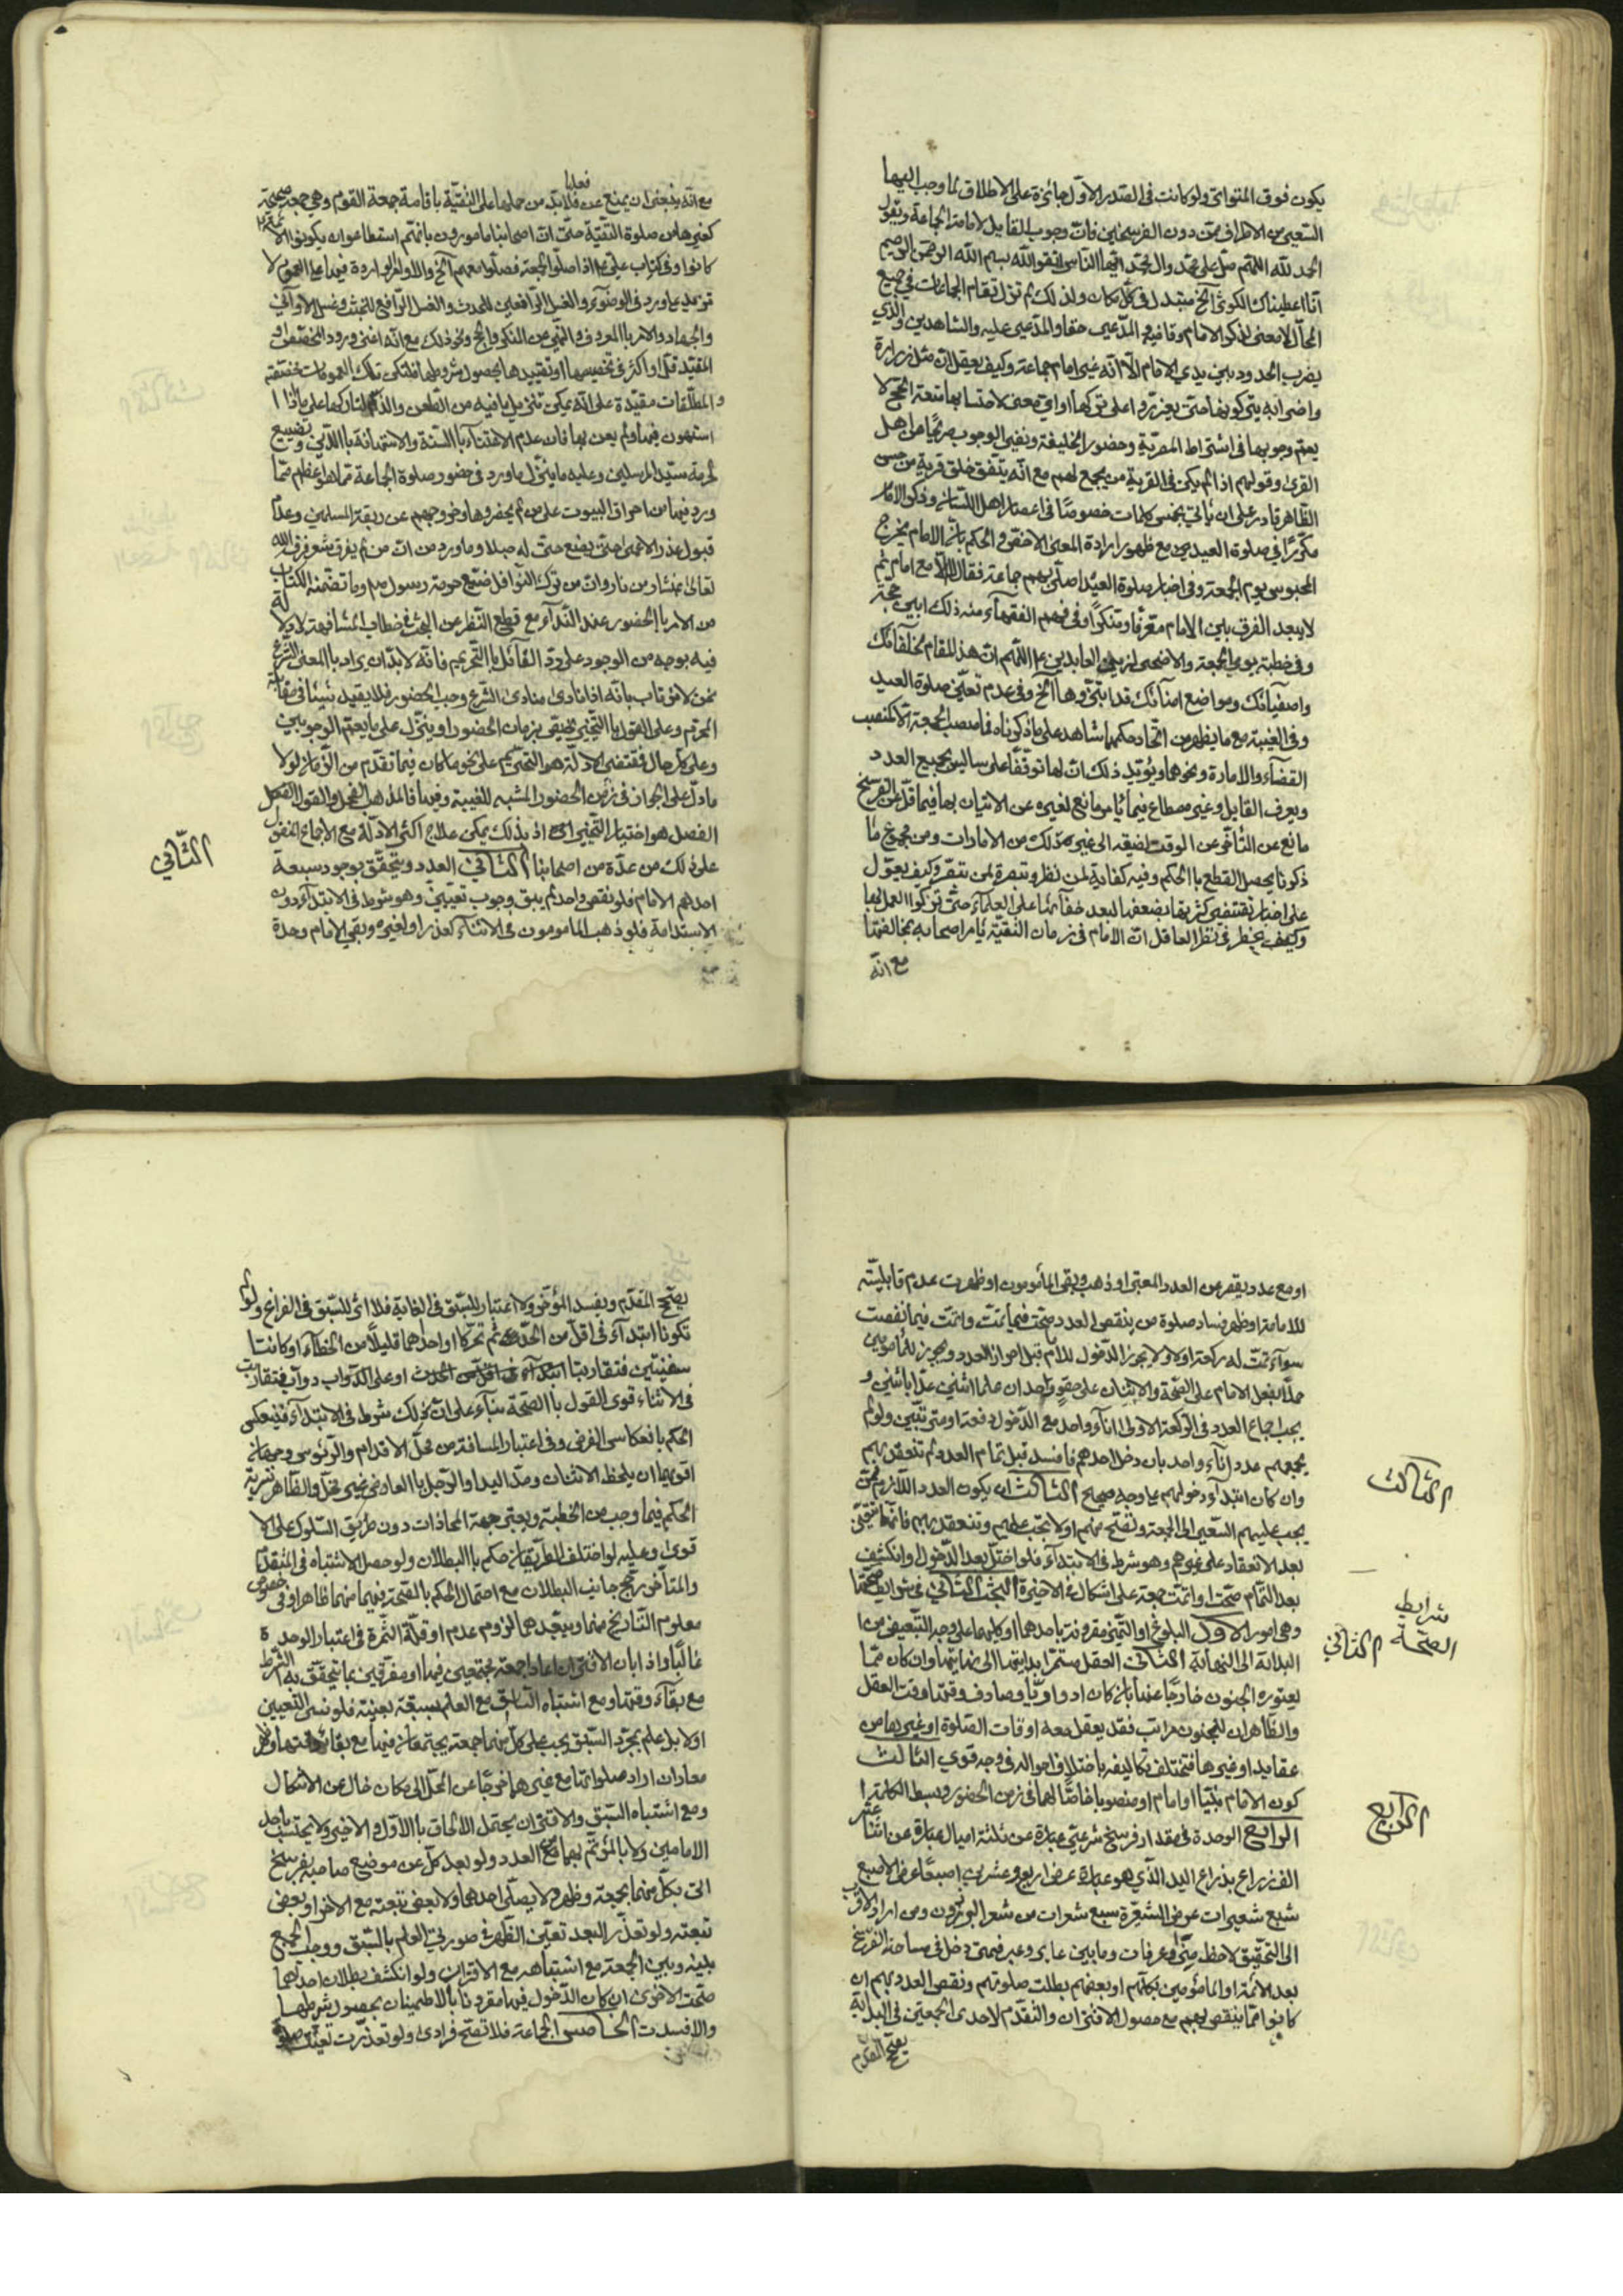 يكون فوق المتواتر ولو كانت في الصدر الاول جائزة على الاطلاق لما وجب اليها
السعي من الاطراف ممن دون الفرسخين فان وجوب المقابل لاقامة الجماعة ويقول
الحمد لله اللهم صل على محمد وال محمد ايها الناس اتقوا الله بسم الله الرحمن الرحيم
انا اعطيناك الكوثر الخ مبتدل في كل مكان ولذلك لم تزل تقام الجماعات في جميع
المحال لا معنى لذكر الامام وقاضيه والمدعي حقا والمدعى عليه والشاهدين والذي
يضرب الحدود بين يدي الامام الا انه غير امام جماعة وكيف يعقل ان مثل زرارة
واضرابه يتركونها حتى يعزروا على تركها او اي معنى لاحتسابها متعة الحج لا
يعم وجوبها في اشتراط المصرية وحضور الخليفة ونفي الوجوب صريحا من اهل
القرى وقولهم اذا لم يكن في القرية من يجمع لهم مع انه يتفق خلق قرية من حسن
الظاهر قادر على ان يأتي بخمس كلمات خصوصا في اعصار اهل اللسان وذكر الامام
مكررا في صلوة العيدين مع ظهور ارادة المعنى الاخص والحكم بان الامام يخرج
المحبوس يوم الجمعة وفي اخبار صلوة العيد اصلى بهم جماعة فقال لا الا مع امام ثم
لا يبعد الفرق بين الامام معرفا ومنكرا وفي فهم الفقهاء منه ذلك ابين حجة
وفي خطبة يوم الجمعة والاضحى لزين العابدين ع اللهم ان هذا المقام لخلفائك
واصفيائك ومواضع امنائك قد ابتزوها الخ وفي عدم تعلق صلوة العيد
وفي الغيبة مع ما يظهر من اتحاد حكمهما شاهد على ما ذكرناه فما منصب الجمعة الا كمنصب
القضاء والامارة ونحوها ويؤيد ذلك ان لها توقفا على سالين بجميع العدد
ويعرف القابل وغير مصطاع فيما يأمر مانع لغيره عن الاتيان بها فيما قل عن الفرسخ
مانع عن التأخر عن الوقت لضيقه الى غير ذلك من الامارات ومن مجموع ما
ذكرنا يحصل القطع بالحكم وفيه كفاية لمن نظر وتبصرة لمن تبصر وكيف يعول
على اخبار تقتضي كثرتها بضعفها لبعد خفائها على العلماء حتى تركوا العمل بها
وكيف يخطر في نظر العاقل ان الامام في زمان التقية يأمر اصحابه بمخالفتها
مع انه
مع انه ينبغي ان يمنع عن فعلها فلا بد من حملها على التقية باقامة جمعة القوم وهي جمعة صحيحة
كغيرها من صلوة التقية حتى ان اصحابنا مامورون بانهم استطاعوا ان يكونوا الائمة
كانوا وفي كتاب علي ع اذا صلوا الجمعة فصلوا معهم الخ والاوامر الواردة فيها على العموم لا
تزيد عما ورد في الوضوء والغسل الرافعين للحدث والغسل الرافع للخبث وغسل الاواني
والجهاد والامر بالمعروف والنهي عن المنكر والحج ونحو ذلك مع انه اغنى ورود المخصص او
المقيد قل او اكثر في تخصيصها او تقييدها بحصول شروطها فلتكن تلك العمومات مخصصة
والمطلقات مقيدة على انه يمكن تنزيل ما فيه من الطعن والذم لتاركها على ما اذا
استهون فيها ولم يعن بها فان عدم الاعتناء بالسنة والاستهانة بالدين وتضييع
لحرمة سيد المرسلين وعليه ما ينزل ما ورد في حضور صلوة الجماعة مما هو اعظم مما
ورد فيها من احراق البيوت على من لم يحضرها وخروجهم عن ربقة المسلمين وعدم
قبول عذر الاعمى حتى يضع حتى له حبلا وما ورد من ان من لم يفرق شعر فرقه الله
تعالى بمنشار من نار وان من ترك النوافل ضيع حرمة رسول ص وما تضمنه الكتاب
من الامر بالحضور عند النداء مع قطع النظر عن البحث في خطاب المشافهة لا دلالة
فيه بوجه من الوجوه على رد القائل بالتحريم فانه لا بد ان يراد بالمعنى الشرعي
فمن لا يرتاب بانه اذا نادى منادى الشرع وجب الحضور فلا يفيد شيئا في مقابلة
المحرم وعلى القول بالتخيير يبقى بزمان الحضور او ينزل على ما يعم الوجوبين
وعلى كل حال فمقتضى الادلة هو التحريم على نحو ما كان فيما تقدم من الزمان لولا
ما دل على الجواز في زمن الحضور المشبه للغيبة وفيها فالمذهب الفحل والقول
الفصل هو اختيار التخيير اذ بذلك يمكن علاج اكثر الادلة مع الاجماع المنقول
على ذلك من عدة من اصحابنا الثاني العدد ويتحقق بوجود سبعة
احدهم الامام فلو نقص واحد لم يبق وجوب تعييني وهو شرط في الابتداء دون
الاستدامة فلو ذهب المأمومون في الاثناء لعذر او لغيره وبقي الامام وحده
الثاني
او مع عدد يقصر عن العدد المعتبر او ذهب وبقي المأمومون او ظهرت عدم قابليته
للامامة او ظهر فساد صلوة من ينقص العدد صحت فيما تمت واتمت فيما نقصت
سواء تمت له ركعة او لا ولا يجوز الدخول للامام قبل احراز العدد ويجوز للمأمومين
حملا لفعل الامام على الصحة والاتيان على حقو واحد ان علما اثنين عدا باثنين و
يجب اجتماع العدد في الركعة الاولى انا واحد مع الدخول دفعة او مترتبين ولو لم
يجمعهم عدد اناء واحد بان دخل احدهم فافسد قبل تمام العدد لم تنعقد بهم
وان كان ابتداء دخولهم على وجه صحيح الثالث ان يكون العدد اللازم ممن
يجب عليهم السعي الى الجمعة وتصح منهم او لا تجب عليهم وتنعقد بهم فانها تبقى
بعد الانعقاد على غيرهم وهو شرط في الابتداء فلو اختل بعد الدخول وانكشف
بعد التمام صحت او اتمت جمعة على اشكال في الاخيرة البحث الثاني في شرايط صحتها
وهي امور الاول البلوغ او التمييز مقرونة باحدهما او كليهما على وجه التبعيض من
البداية الى النهاية الثاني العقل مستمرا بدايتها الى نهايتها وان كان مما
يعتوره الجنون خارجا عنها بان كان ادواريا وصادف وقتها وقت العقل
والظاهر ان للجنون مراتب فقد يعقل معه اوقات الصلوة او غيرها من
عقايد او غيرها فتختلف تكاليفه باختلاف احواله في وجه قوي الثالث
كون الامام نبيا او امام او منصوبا خاصا لهما في زمن الحضور وبسط الكلمة
الرابع الوحدة في مقدار فرسخ شرعي عبارة عن ثلثة اميال عبارة عن اثنا عشر
الف ذراع بذراع اليد الذي هو عبارة عرض اربع وعشرين اصبعا عرض الاصبع
سبع شعيرات عرض الشعيرة سبع شعرات من شعر البرذون ومن اراد الاقرب
الى التحقيق لاحظ منى وعرفات وما بين عاير وعير فمتى دخل في مساحة الفرسخ
بعد الائمة او المأمومين بكلهم او بعضهم بطلت صلوتهم ونقص العدد بهم ان
كانوا مما ينقص بهم مع حصول الاقتران والتقدم لاحدى الجمعتين في البداية
يصح المقدم
الثالث
شرايط
الصحة الثاني
الرابع
يصح المقدم ويفسد المؤخر ولا اعتبار للسبق في الغاية فلا اثر للسبق في الفراغ ولو لم
تكونا ابتداء في اقل من الحد ثم تحركا او احدهما قليلا من الخطاء او كانتا
سفينتين فتقاربتا او على الدواب دواب فتقاربت
في الاثناء قوى القول بالصحة بناء على ان ذلك شرط في الابتداء فينعكس
الحكم بانعكاس الفرض وفي اعتبار المسافة من محل الاقدام والرؤوس وجهان
اقويهما ان يلحظ الاثنان ومد اليد او الرجل بالعارض غير مخل والظاهر تسرية
الحكم فيما وجب من الخطبة ويعتبر جهة المحاذات دون طريق السلوك على الا
قوى وعليه لو اختلف الطريقان حكم بالبطلان ولو حصل الاشتباه في المتقدم
والمتأخر رجح جانب البطلان مع احتمال الحكم بالصحة فيهما منهما ظاهرا وفي خصوص
معلوم التاريخ منهما ويبعدهما لزوم عدم او قلة الثمرة في اعتبار الوحدة
غالبا واذا بان الاقتران اعادا جمعة مجتمعين فيها او مفرقين بما يتحقق به الشرط
مع بقاء وقتها ومع اشتباه السابق مع العلم بسبقه بعينه فلو نسي التعيين
او لا بل علم مجرد السبق يجب على كل منهما جمعة يجتمعان فيها مع بقاء وقتها وظهر
معادان اراد صلواتها مع غيرهما خرجا عن المحل الى مكان خال عن الاشكال
ومع اشتباه السبق والاقتران يحتمل الالحاق بالاول والاخير ولا يحتسب باحد
الامامين ولا بالمؤتم بهما من العدد ولو بعد كل عن موضع صاحبه بفرسخ
اتى بكل منهما بجمعة وظهر ولا يصلي احدهما ولا بعض تبعته مع الاخر او بعض
تبعته ولو تعذر البعد تعين الظهر في صورتي العلم بالسبق ووجب الجمع
بينه وبين الجمعة مع اشتباهه مع الاقتران ولو انكشف بطلان احدهما
صحت الاخرى ان كان الدخول فيها مقرونا بالاطمينان بحصول شرطها
والا فسدت الخامس الجماعة فلا تصح فرادى ولو تعذرت تعين